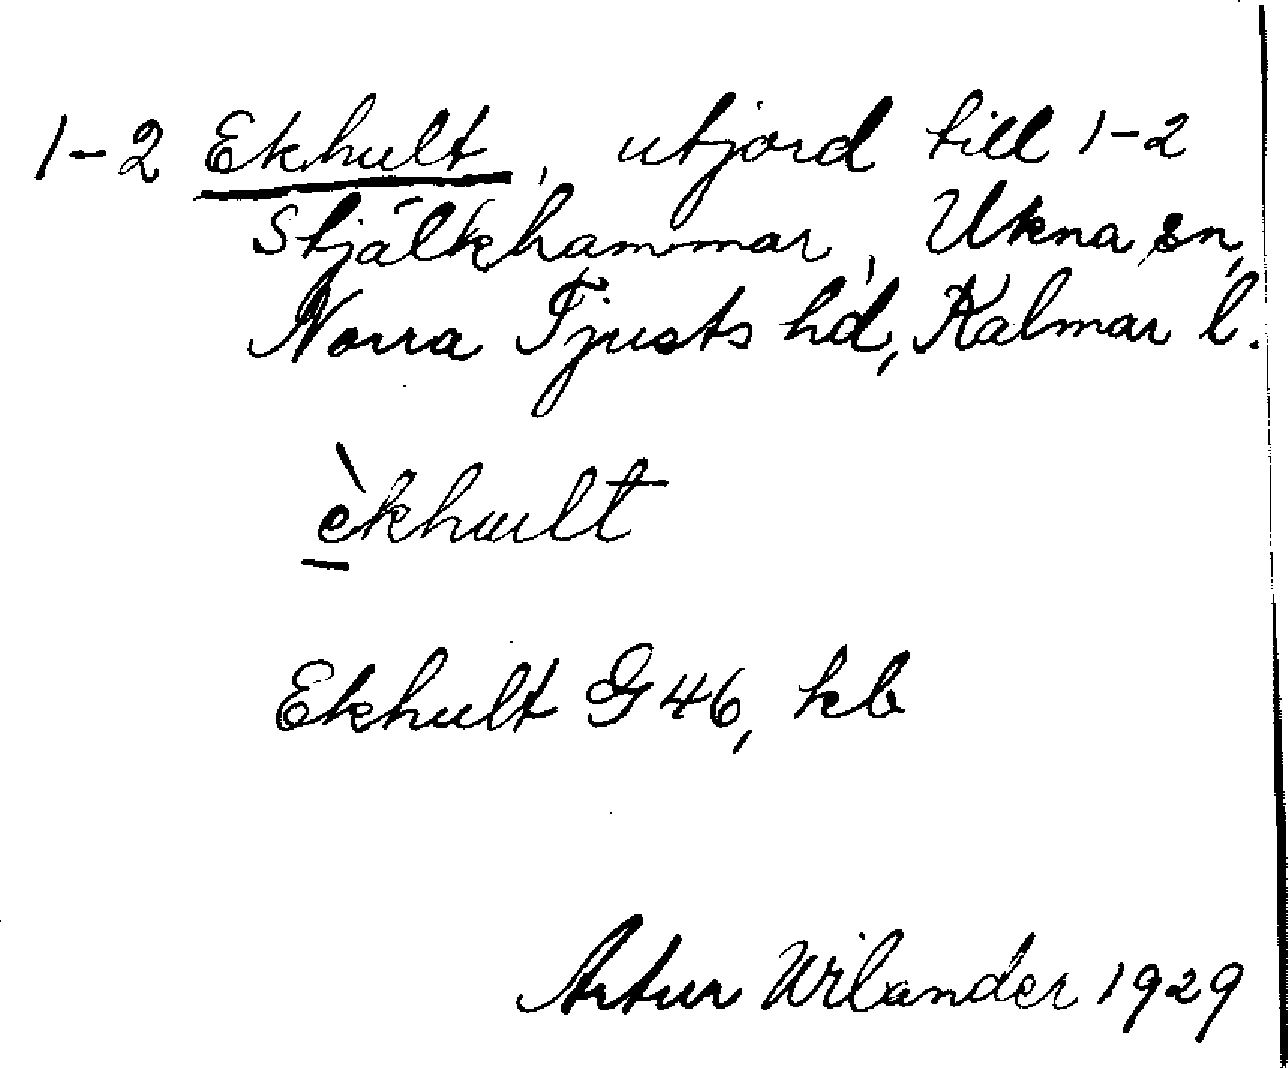 1-2 Ekhult, utjord till 1-2
Stjälkhammar, Ukna sn,
Norra Tjusts hd, Kalmar l.
èkhult
Ekhult G 46, kb
Artur Wilander 1929